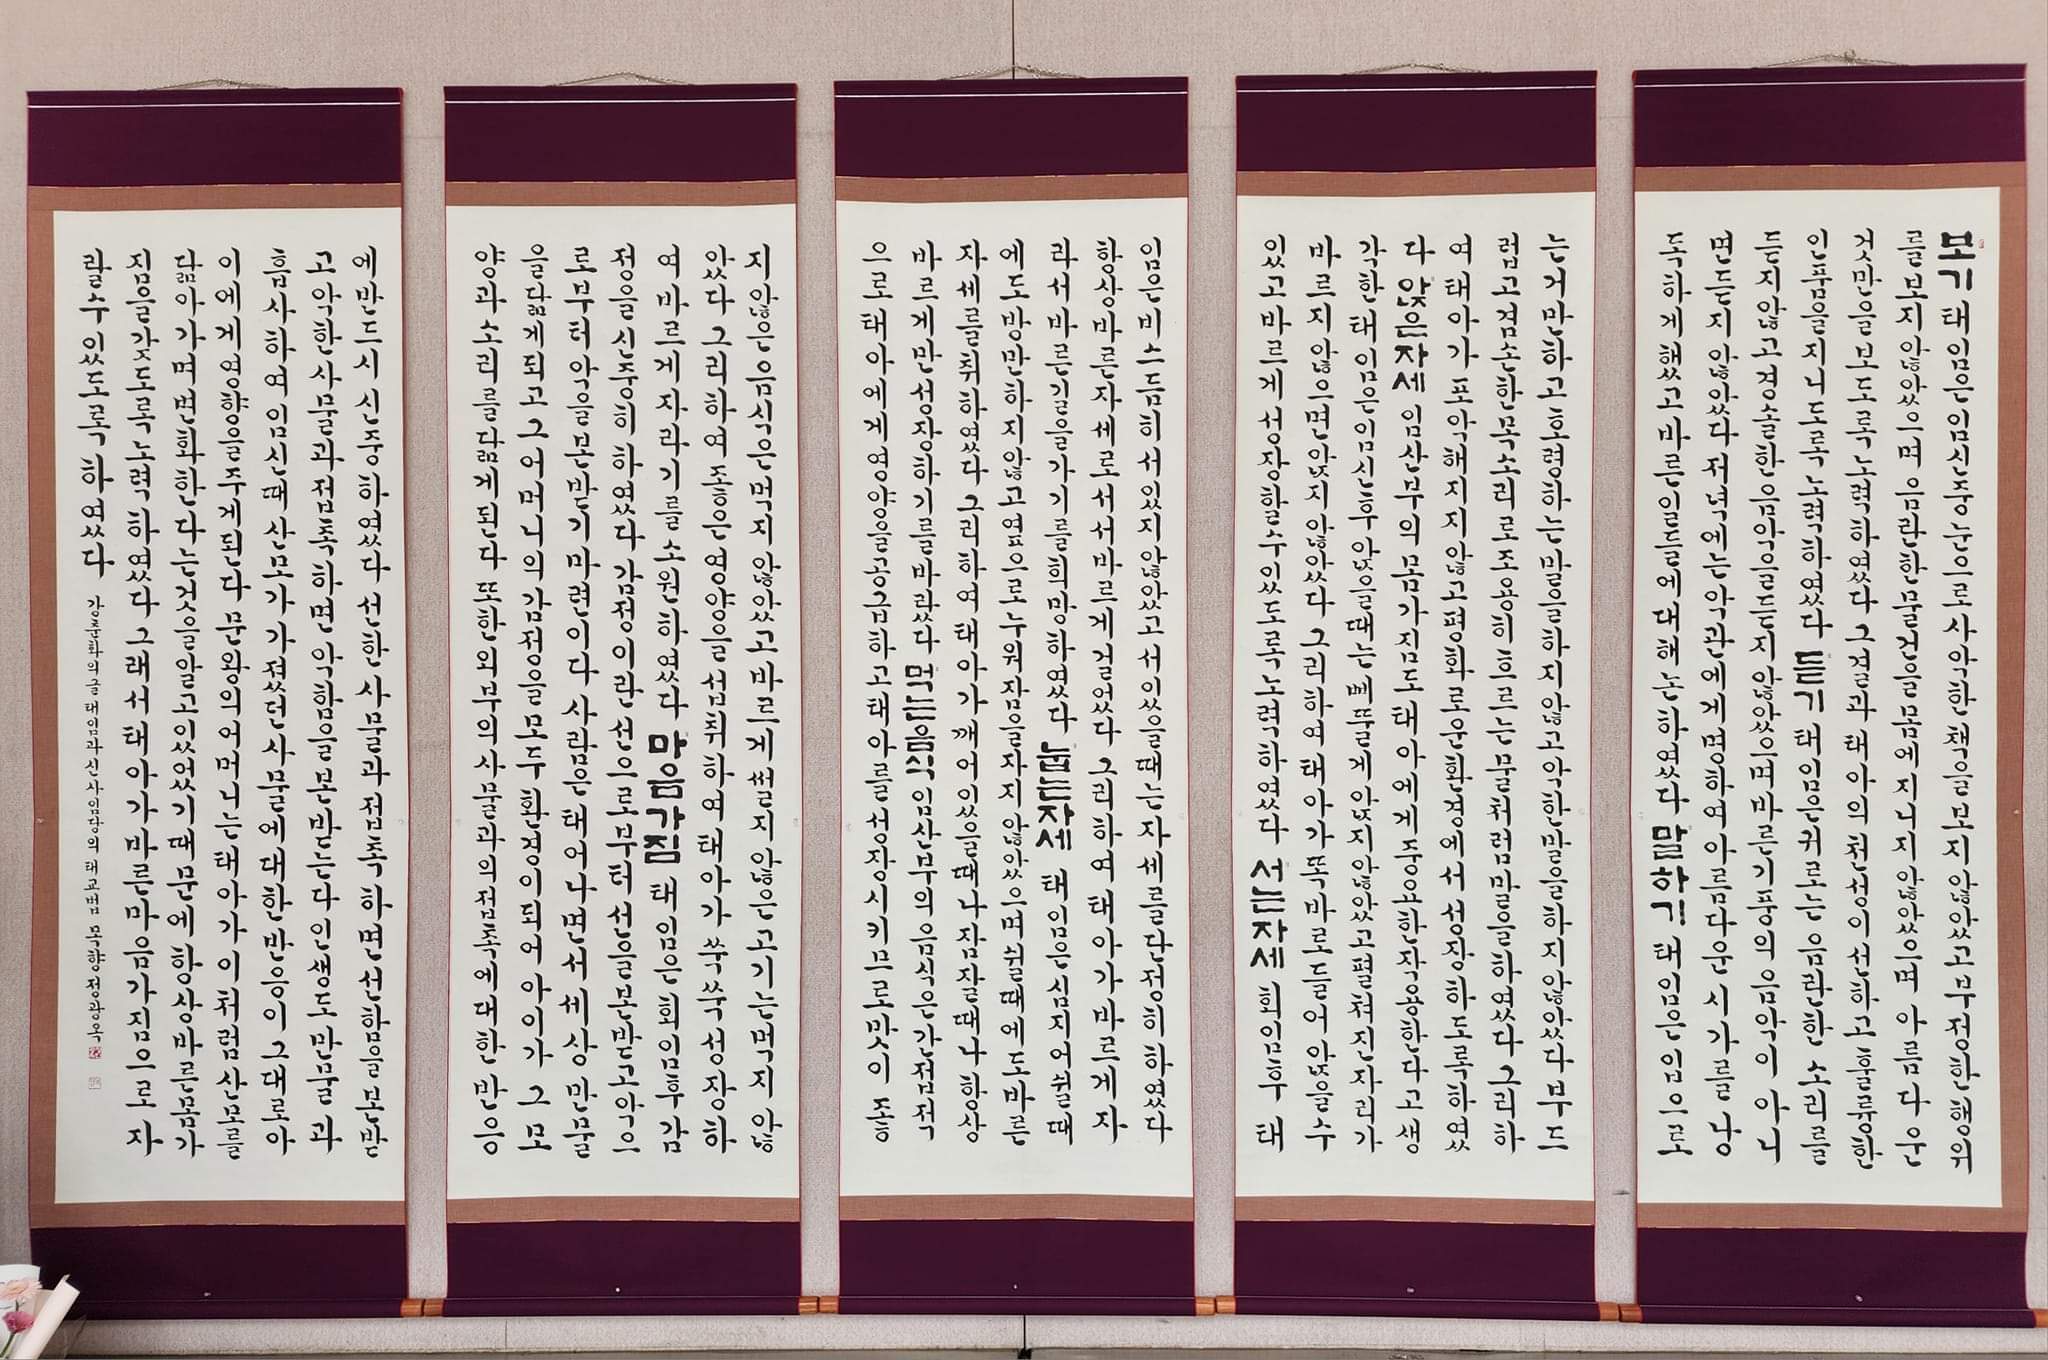 보기 태임은임신중눈으로사악한책을보지않았고부정한행위
를보지않았으며음란한물건을몸에지니지않았으며아름다운
것만을보도록노력하였다그결과태아의천성이선하고훌륭한
인품을지니도록노력하였다 듣기 태임은귀로는음란한소리를
듣지않고경솔한음악을듣지않았으며바른기풍의음악이아니
면듣지않았다저녁에는악관에게명하여아름다운시가를낭
독하게했고바른일들에대해논하였다 말하기 태임은입으로
는거만하고호령하는말을하지않고악한말을하지않았다부드
럽고겸손한목소리로조용히흐르는물처럼말을하였다그리하
여태아가포악해지지않고평화로운환경에서성장하도록하였
다 앉은자세 임산부의몸가짐도태아에게중요한작용한다고생
각한태임은임신후앉을때는삐뚤게앉지않았고펼쳐진자리가
바르지않으면앉지않았다그리하여태아가똑바로들어앉을수
있고바르게성장할수있도록노력하였다 서는자세 회임후태
임은비스듬히서있지않았고서있을때는자세를단정히하였다
항상바른자세로서서바르게걸었다그리하여태아가바르게자
라서바른길을가기를희망하였다 눕는자세 태임은심지어쉴때
에도방만하지않고옆으로누워잠을자지않았으며쉴때에도바른
자세를취하였다그리하여태아가깨어있을때나잠잘때나항상
바르게만성장하기를바랐다 먹는음식 임산부의음식은간접적
으로태아에게영양을공급하고태아를성장시키므로맛이좋
지않은음식은먹지않았고바르게썰지않은고기는먹지않
았다그리하여좋은영양을섭취하여태아가쑥쑥성장하
여바르게자라기를소원하였다 마음가짐 태임은회임후감
정을신중히하였다감정이란선으로부터선을본받고악으
로부터악을본받기마련이다사람은태어나면서세상만물
을닮게되고그어머니의감정을모두환경이되어아이가그모
양과소리를닮게된다또한외부의사물과의접촉에대한반응
에반드시신중하였다선한사물과접촉하면선함을본받
고악한사물과접촉하면악함을본받는다인생도만물과
흡사하여임신때산모가가졌던사물에대한반응이그대로아
이에게영향을주게된다문왕의어머니는태아가이처럼산모를
닮아가며변화한다는것을알고있었기때문에항상바른몸가
짐을갖도록노력하였다그래서태아가바른마음가짐으로자
랄수있도록하였다 강준화의글태임과신사임당의태교법 묵향정광옥